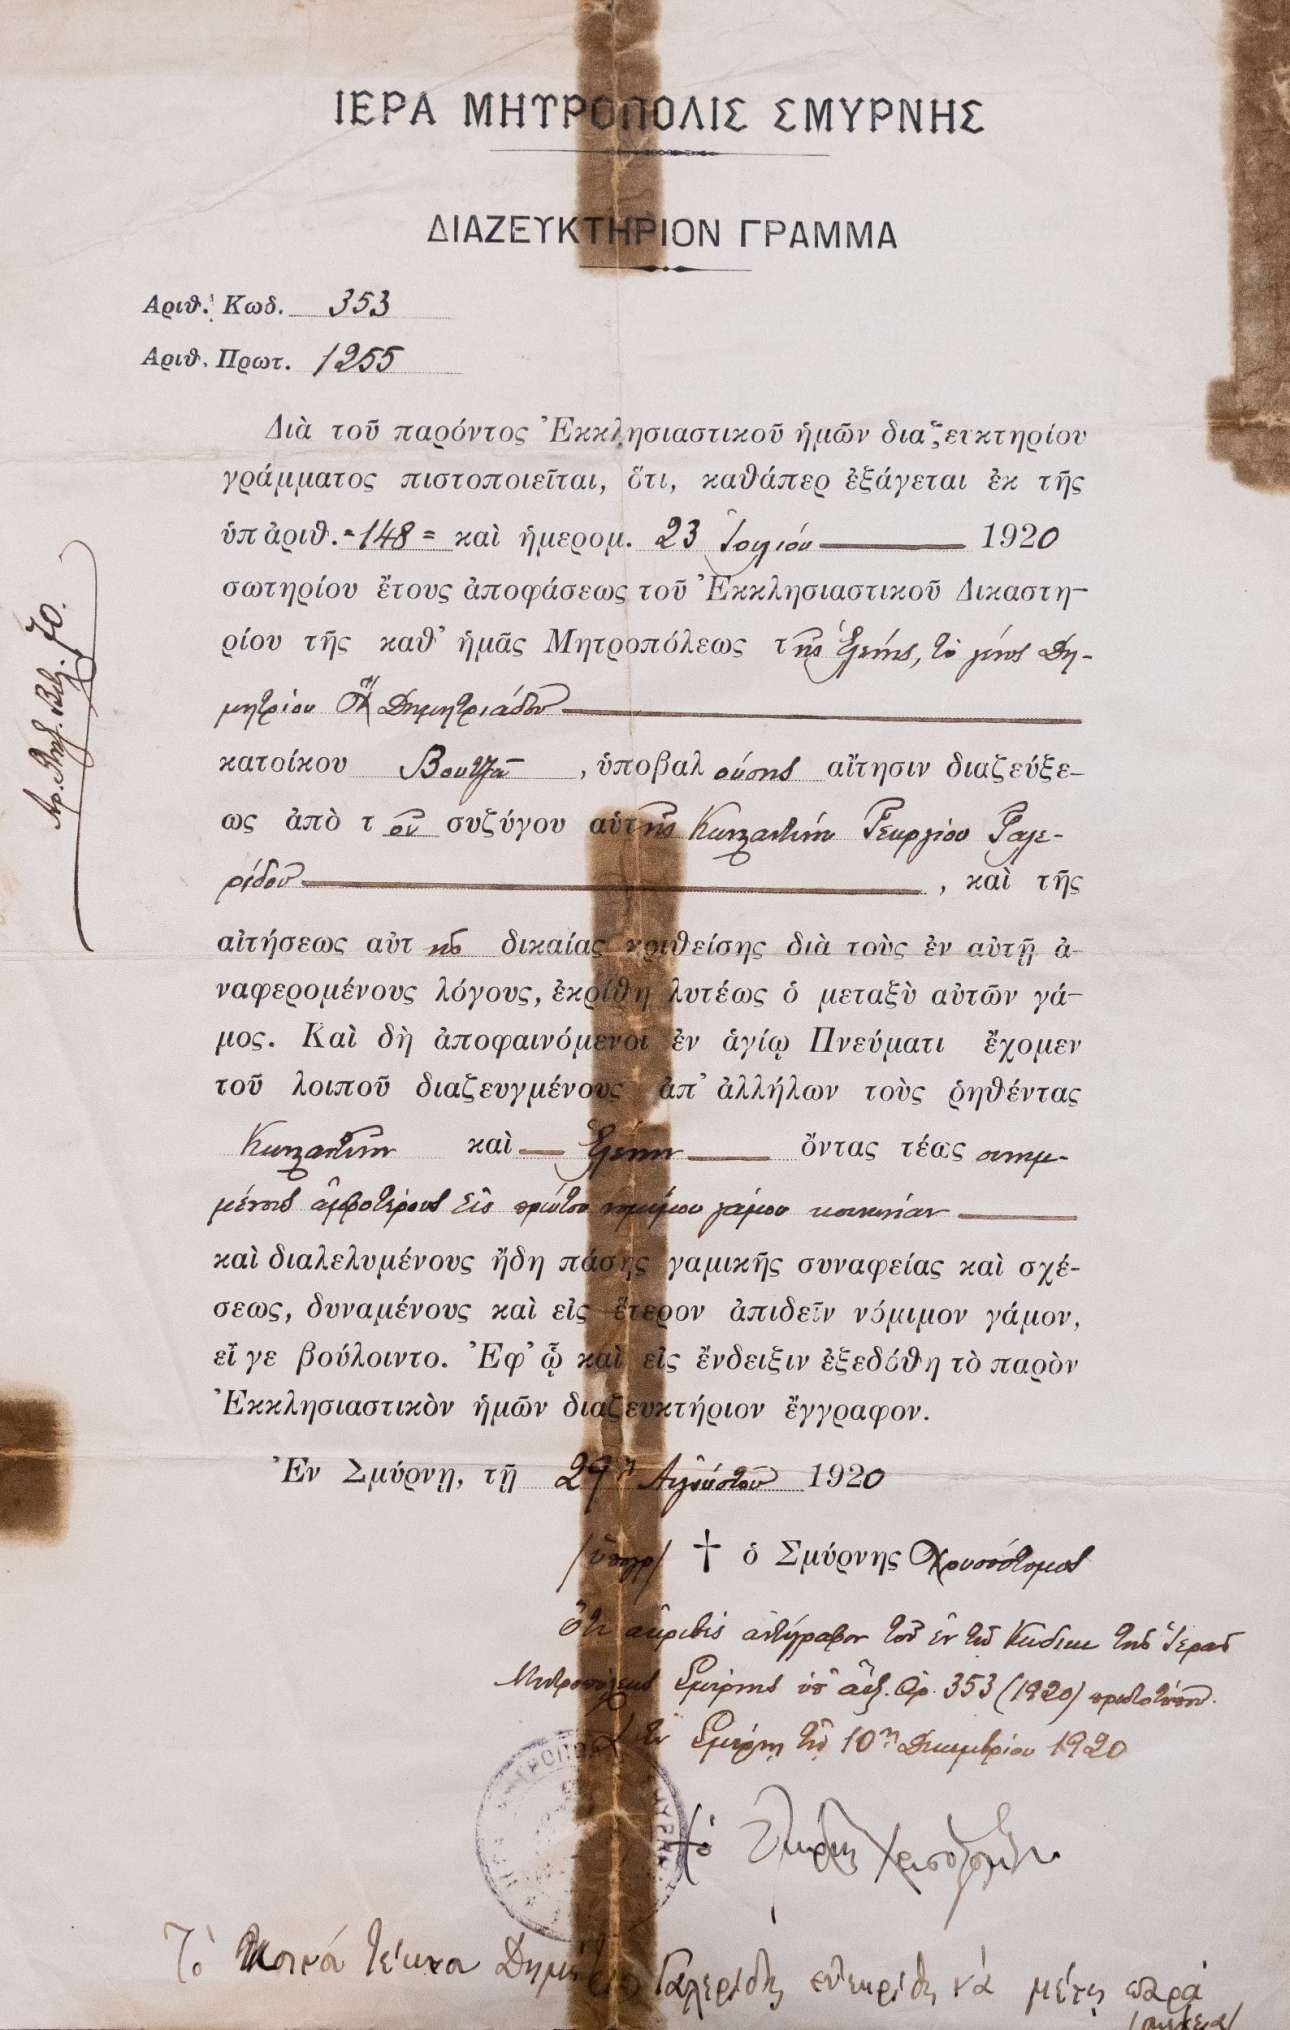 ΙΕΡΑ ΜΗΤΡΟΠΟΛΙΣ ΣΜΥΡΝΗΣ
ΔΙΑΖΕΥΚΤΗΡΙΟΝ ΓΡΑΜΜΑ
Ἀριθ. Κωδ. 353
Ἀριθ. Πρωτ. 1255
Διὰ τοῦ παρόντος Ἐκκλησιαστικοῦ ἡμῶν διαζευκτηρίου
γράμματος πιστοποιεῖται, ὅτι, καθάπερ ἐξάγεται ἐκ τῆς
ὑπ ἀριθ. =148= καὶ ἡμερομ. 23 Ἰουλίου 1920
σωτηρίου ἔτους ἀποφάσεως τοῦ Ἐκκλησιαστικοῦ Δικαστη-
ρίου τῆς καθ' ἡμᾶς Μητροπόλεως τῆς Ἑλένης, τὸ γένος Δη-
μητρίου Χ" Δημητριάδου
κατοίκου Βουτζᾶ, ὑποβαλούσης αἴτησιν διαζεύξε-
ως ἀπὸ τοῦ συζύγου αὐτῆς Κωνσταντίνου Γεωργίου Γαλε-
ρίδου, καὶ τῆς
αἰτήσεως αὐτῆς δικαίας κριθείσης διὰ τοὺς ἐν αὐτῇ ἀ-
ναφερομένους λόγους, ἐκρίθη λυτέως ὁ μεταξὺ αὐτῶν γά-
μος. Καὶ δὴ ἀποφαινόμενοι ἐν ἁγίῳ Πνεύματι ἔχομεν
τοῦ λοιποῦ διαζευγμένους ἀπ' ἀλλήλων τοὺς ῥηθέντας
Κωνσταντῖνον καὶ Ἑλένην ὄντας τέως συνημ-
μένους ἀμφοτέρους εἰς πρώτου νομίμου γάμου κοινωνίαν
καὶ διαλελυμένους ἤδη πάσης γαμικῆς συναφείας καὶ σχέ-
σεως, δυναμένους καὶ εἰς ἕτερον ἀπιδεῖν νόμιμον γάμον,
εἴ γε βούλοιντο. Ἐφ' ᾧ καὶ εἰς ἔνδειξιν ἐξεδόθη τὸ παρὸν
Ἐκκλησιαστικὸν ἡμῶν διαζευκτήριον ἔγγραφον.
Ἐν Σμύρνῃ, τῇ 29ῃ Αὐγούστου 1920
(ὑπογρ) † ὁ Σμύρνης Χρυσόστομος
Ὅτι ἀκριβὲς ἀντίγραφον τοῦ ἐν τῷ Κώδικι τῆς Ἱερᾶς
Μητροπόλεως Σμύρνης ὑπ' αὔξ. ἀρ. 353 (1920) πρωτοτύπου.
Ἐν Σμύρνῃ τῇ 10ῃ Δεκεμβρίου 1920
† ὁ Σμύρνης Χρυσόστομος
Τὸ τέκνα Γαλερίδης νὰ μένῃ παρὰ